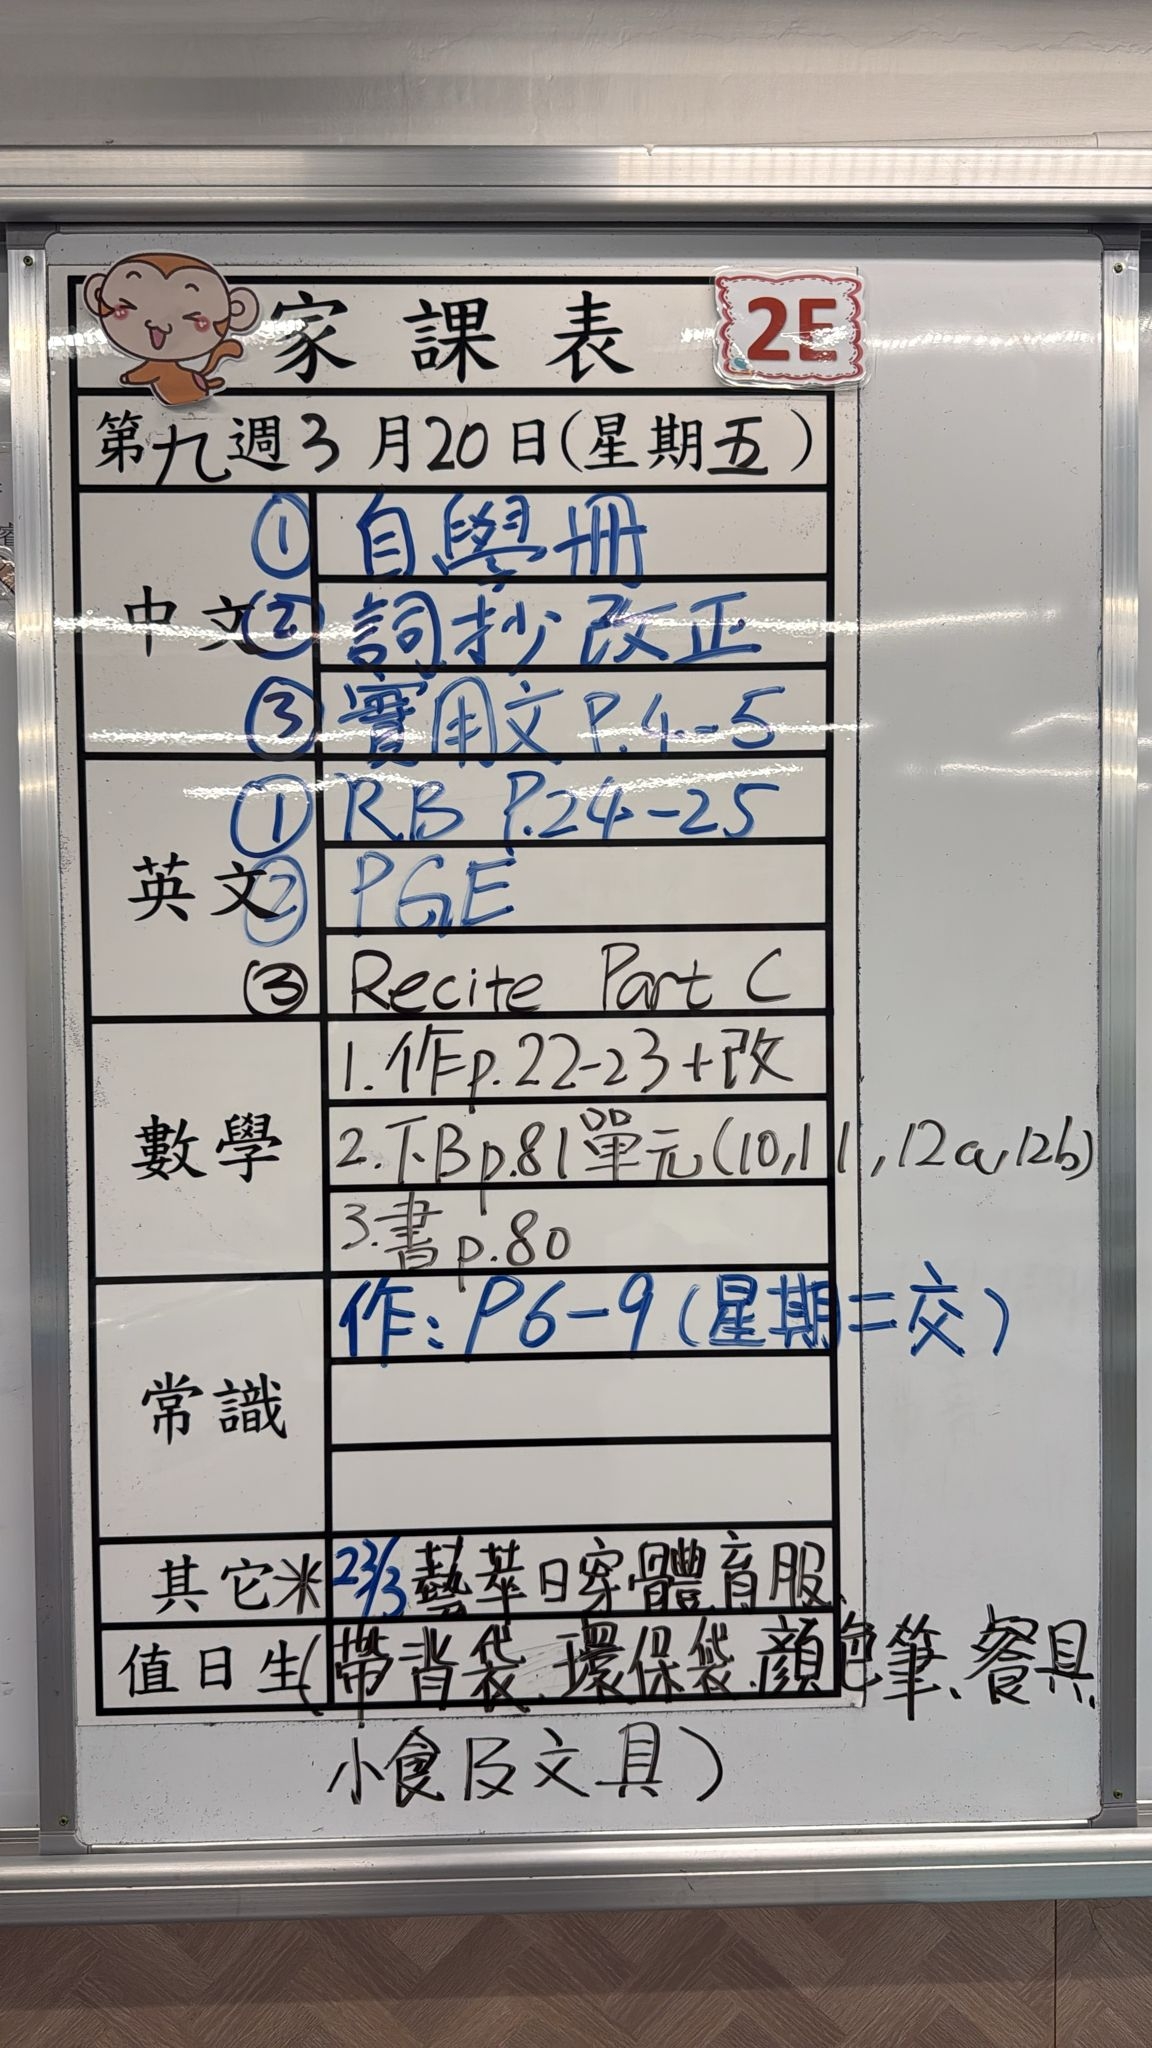 家課表 2E
第九週3月20日(星期五)
中文
① 自學冊
② 詞抄改正
③ 實用文 P.4-5
英文
① R.B P.24-25
② PGE
③ Recite Part C
數學
1.作p.22-23+改
2.下B p.81單元(10,11,12a,12b)
3.書p.80
常識
作:P6-9(星期二交)
其它 米 23/3 藝萃日穿體育服
值日生 (帶背袋、環保袋、顏色筆、餐具、
小食及文具)